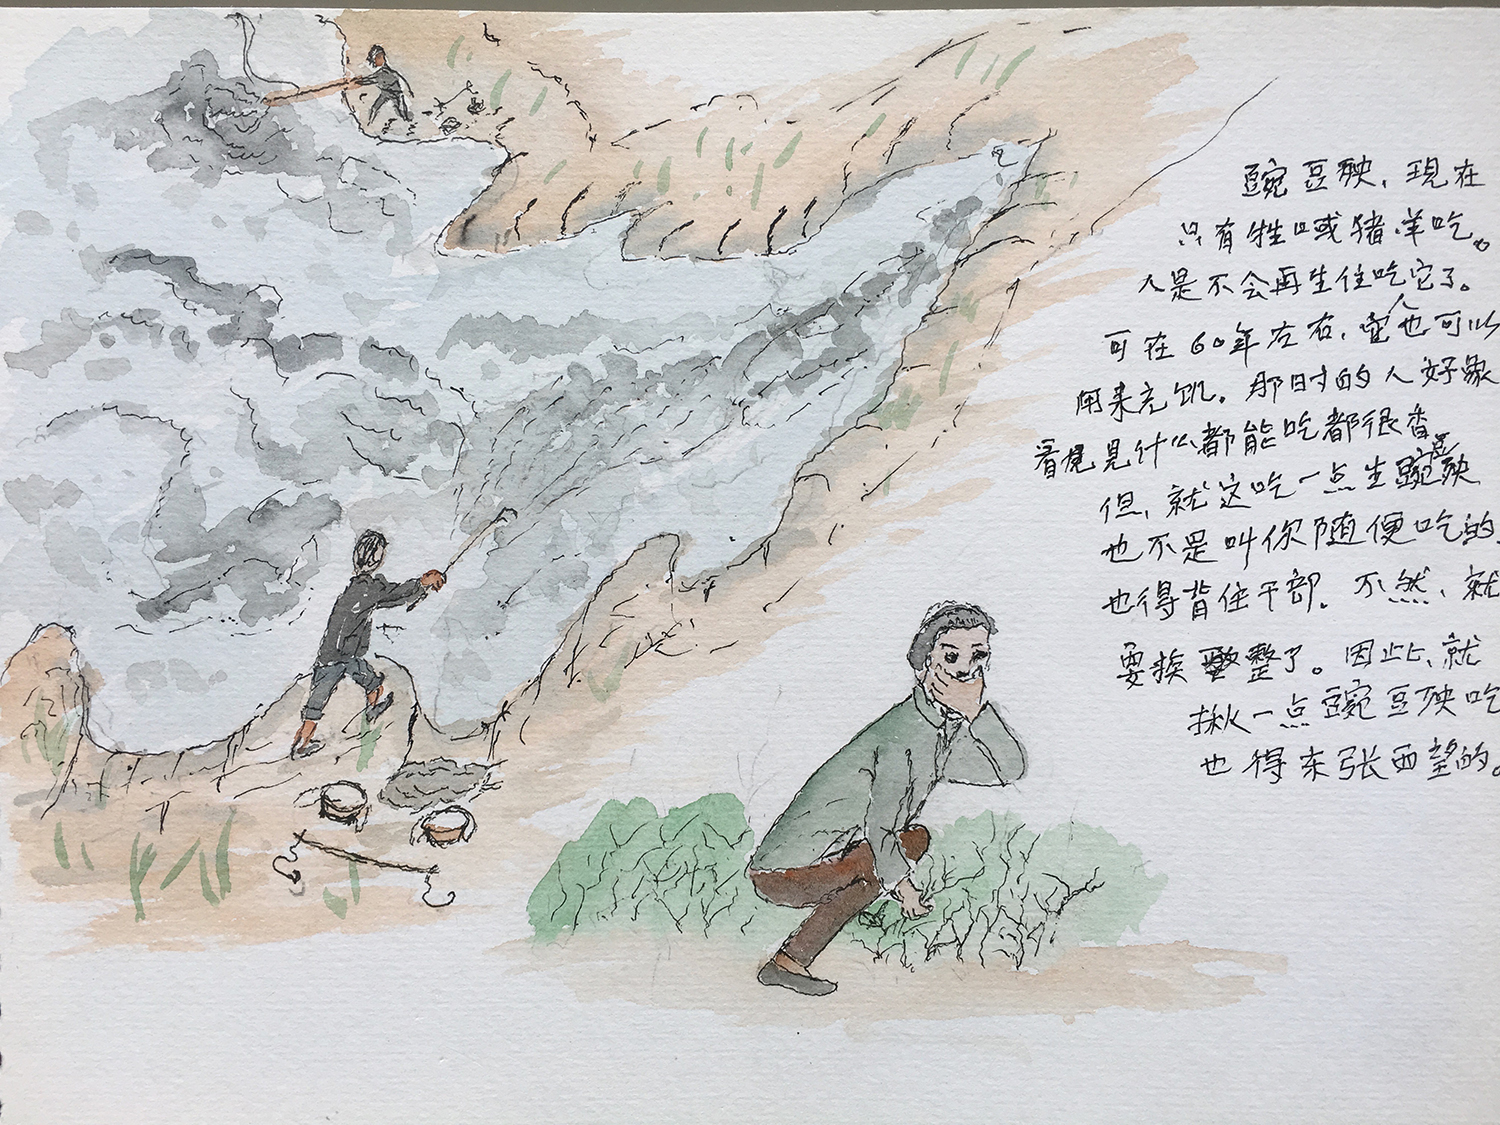 豌豆秧，现在
只有牲口或猪羊吃。
人是不会再生住吃它了。
可在60年左右，人也可以
用来充饥。那时的人好象
看见什么都能吃都很香。
但，就这吃一点生豌豆秧
也不是叫你随便吃的，
也得背住干部。不然，就
要挨整了。因此，就
揪一点豌豆秧吃
也得东张西望的。